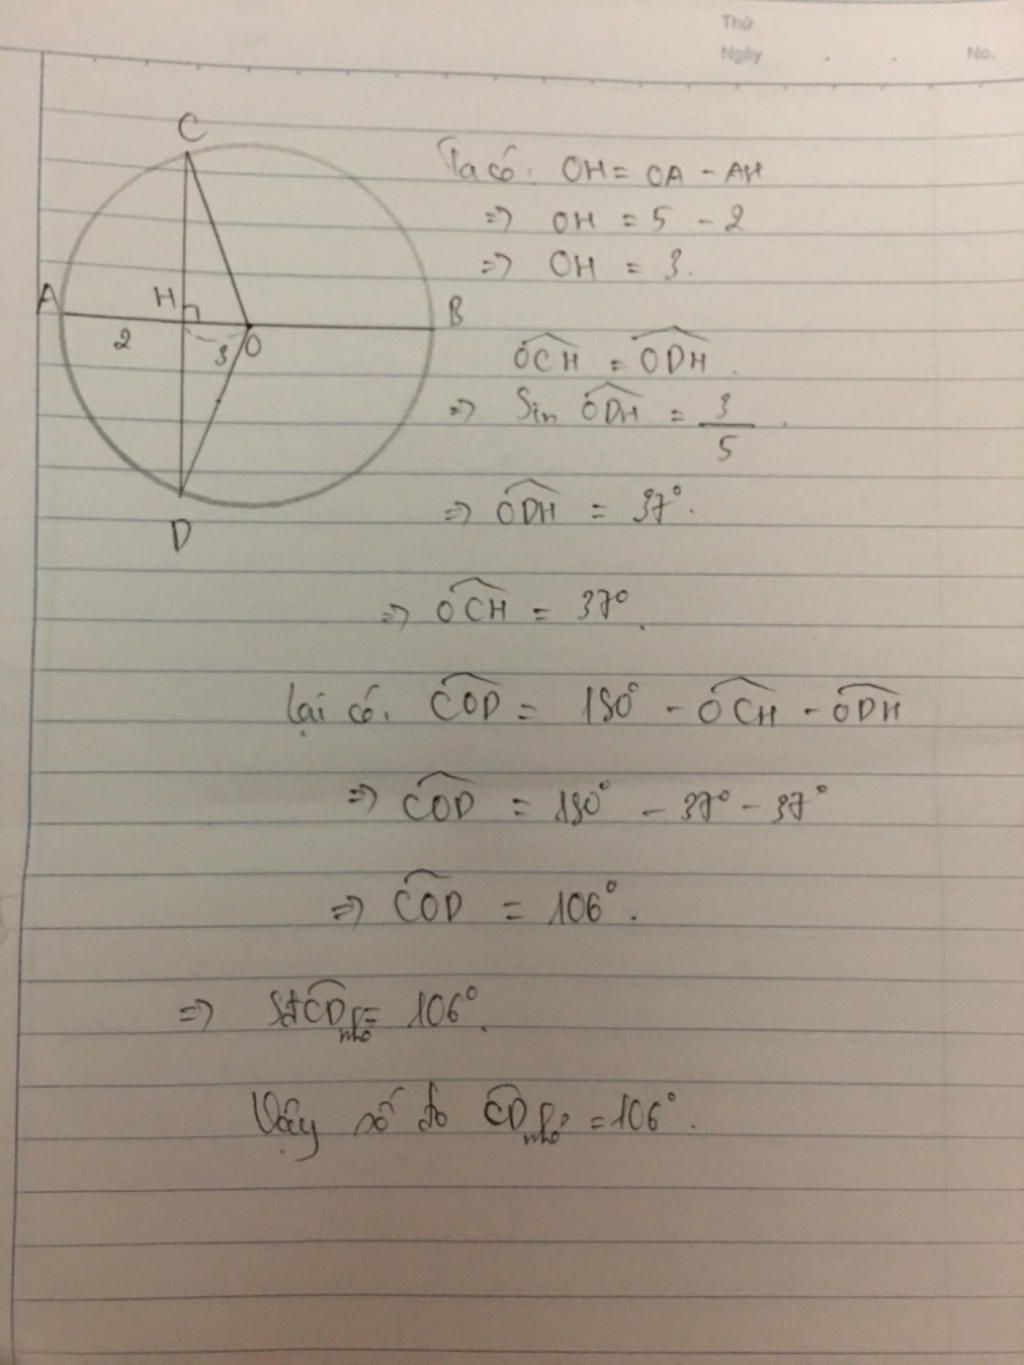 Thứ
Ngày
No.
C
A
H
B
2
3
O
D
Ta có: OH = OA - AH
=> OH = 5 - 2
=> OH = 3.
OCH = ODH.
=> Sin ODH = 3/5.
=> ODH = 37°.
=> OCH = 37°.
lại có. COD = 180° - OCH - ODH
=> COD = 180° - 37° - 37°
=> COD = 106°.
=> SđCD nhỏ = 106°.
Vậy số đo CD nhỏ = 106°.